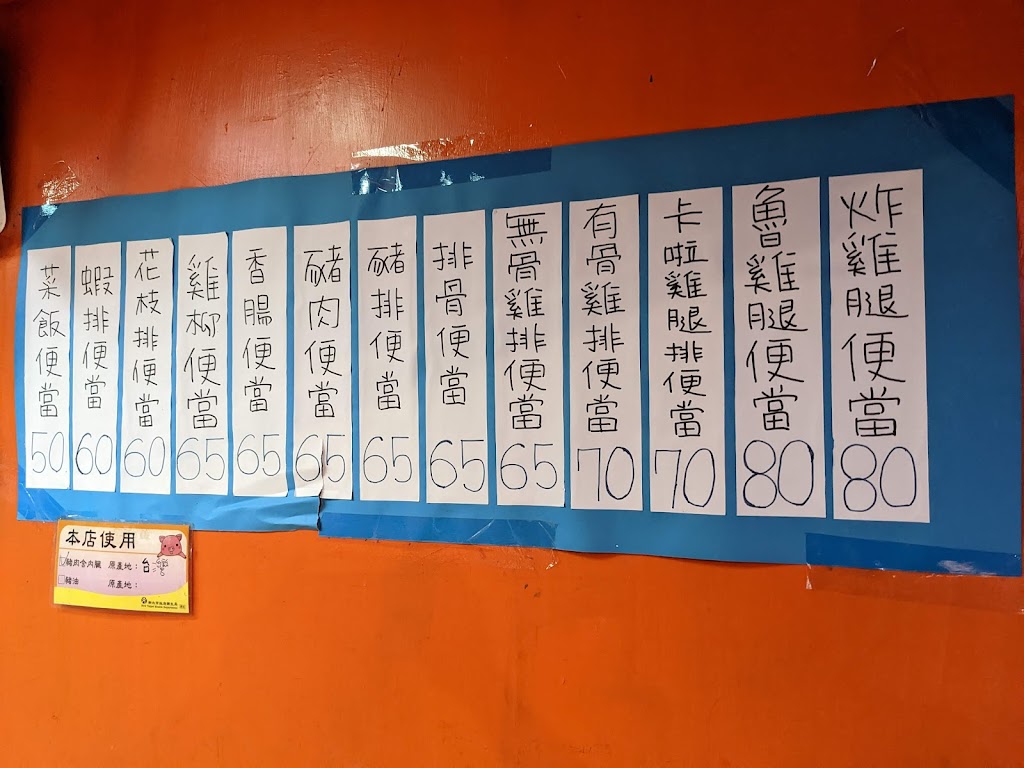 炸雞腿便當 80
魯雞腿便當 80
卡啦雞腿排便當 70
有骨雞排便當 70
無骨雞排便當 65
排骨便當 65
豬排便當 65
豬肉便當 65
香腸便當 65
雞柳便當 65
花枝排便當 60
蝦排便當 60
菜飯便當 50
本店使用
豬肉含內臟 原產地：台灣
豬油 原產地：